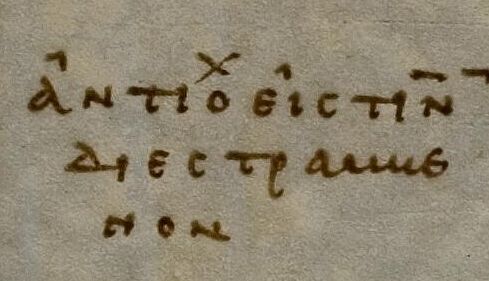 ἀντιοχ εἰς τιν
διεστραμμε
νον